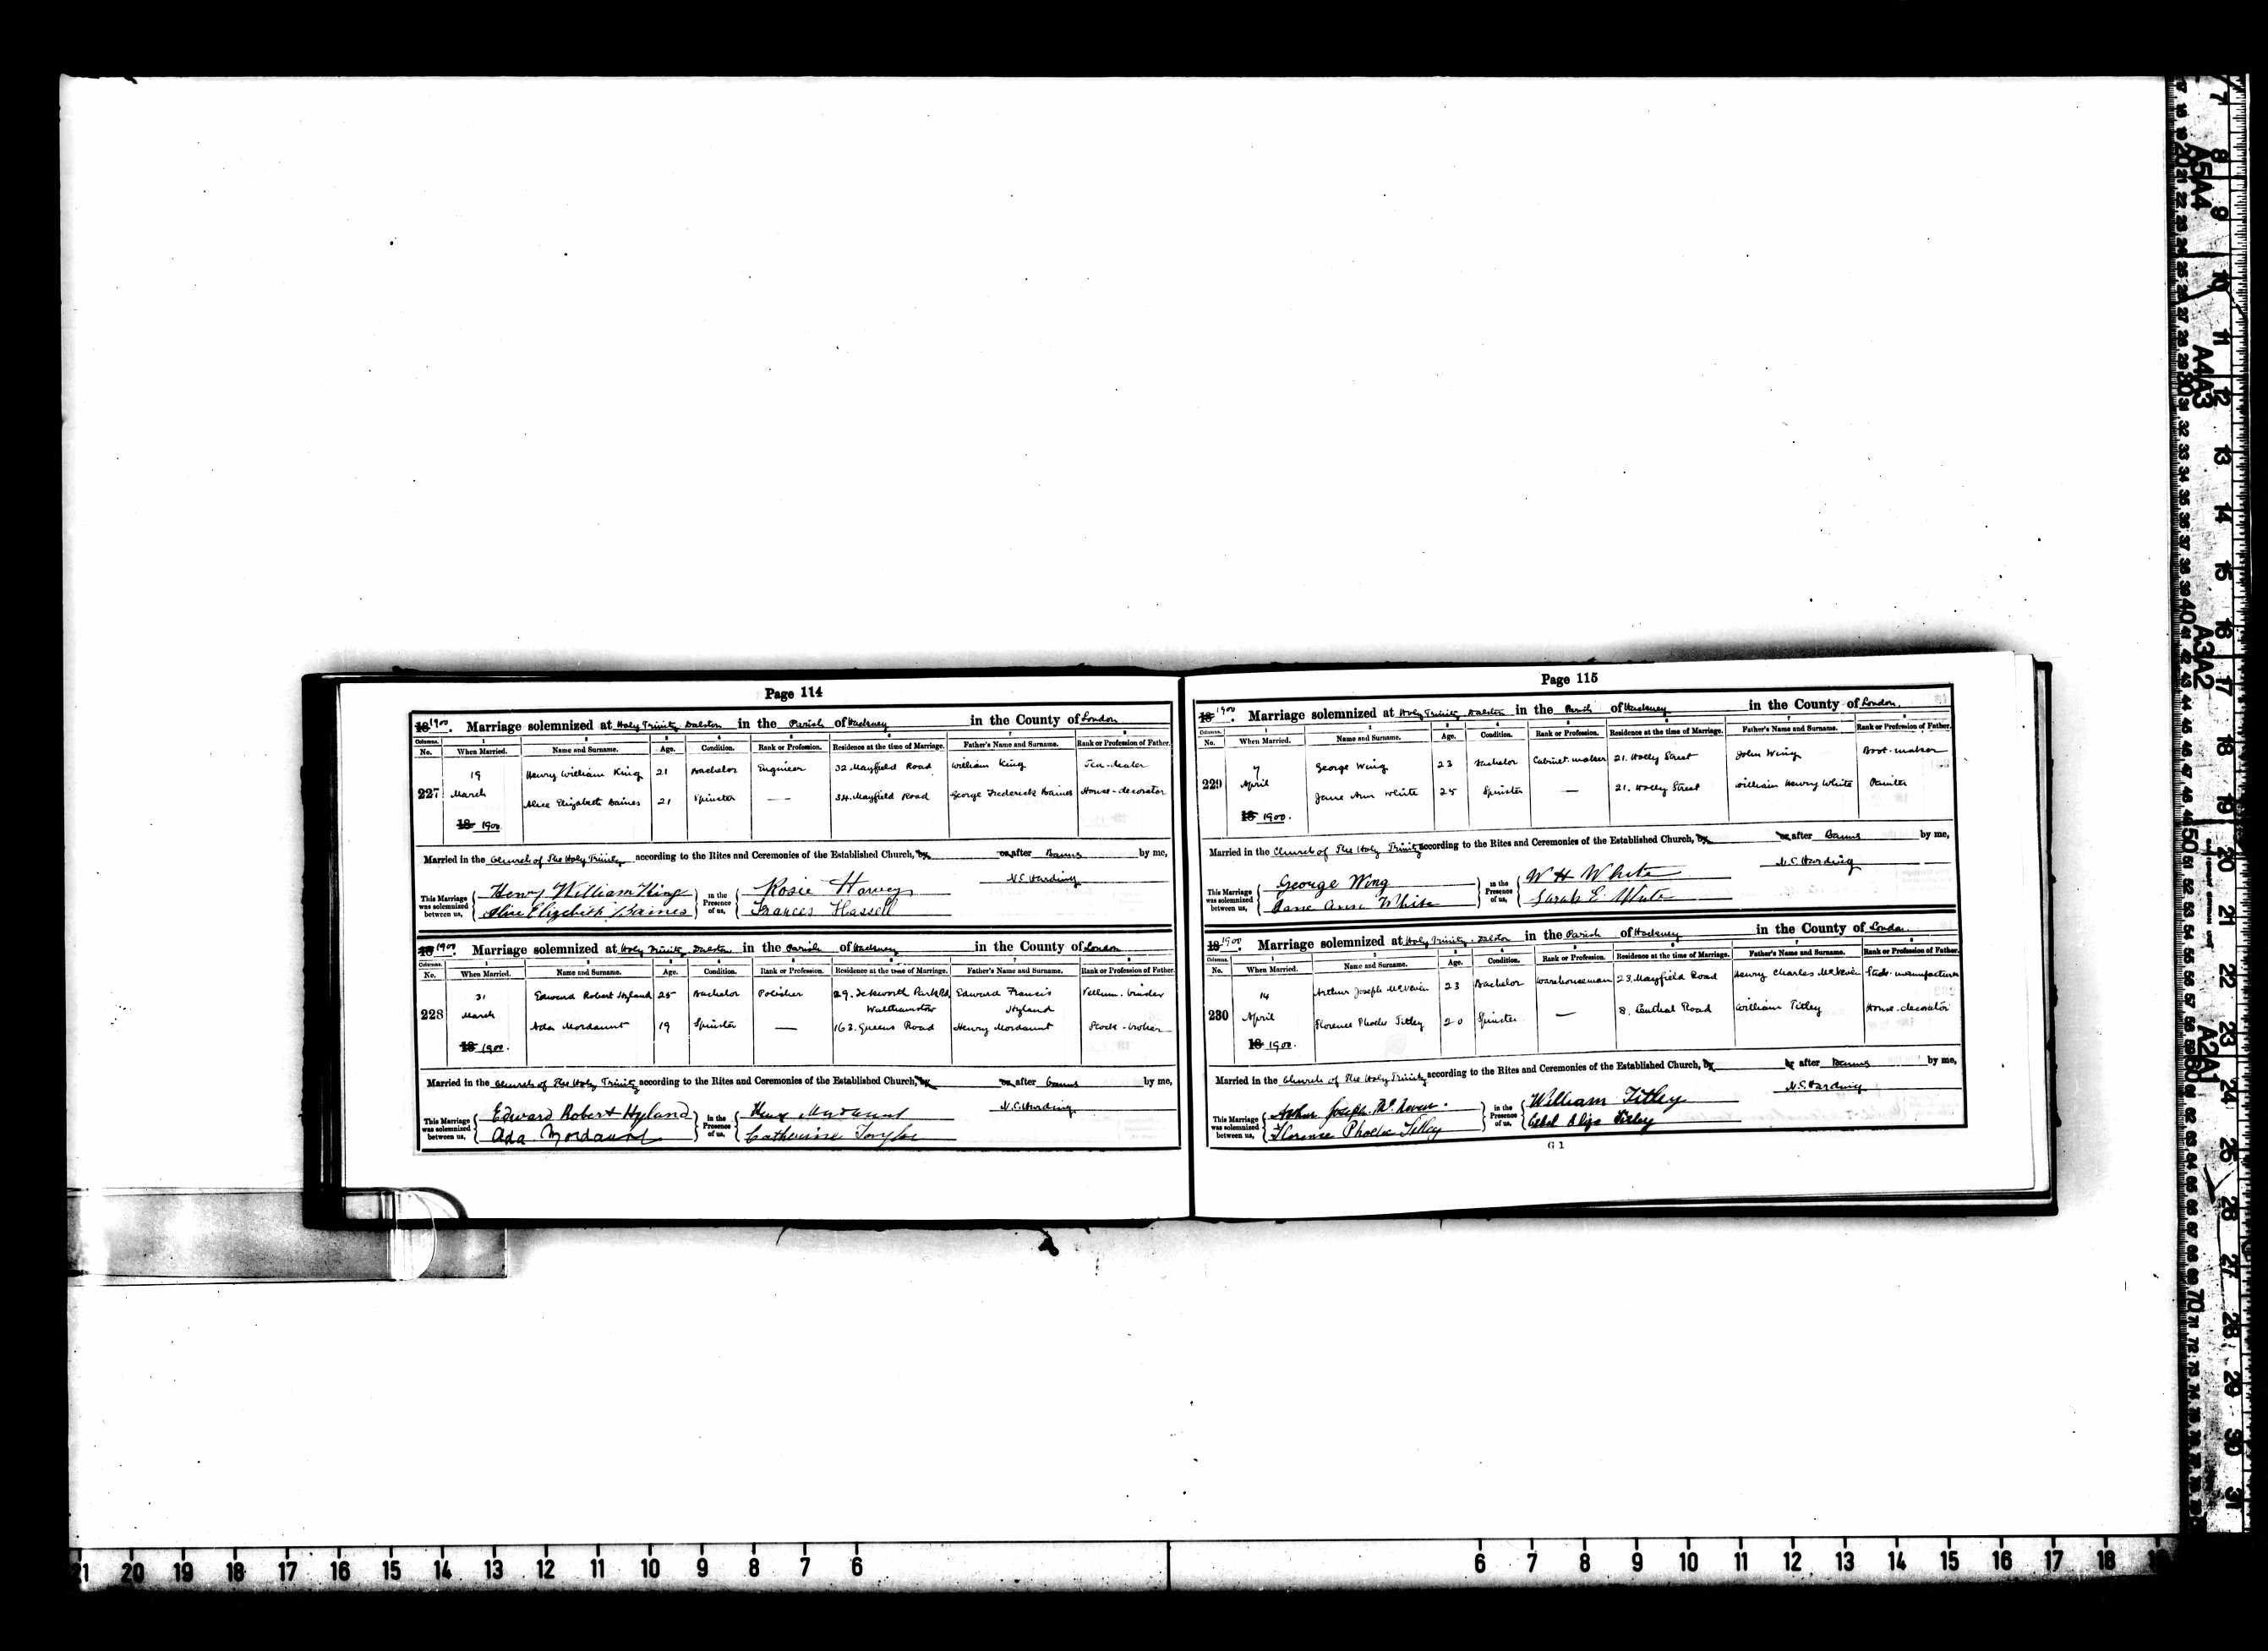 Page 114
18 1900. Marriage solemnized at Holy Trinity Dalston in the Parish of Hackney in the County of London
Columns. 1 2 3 4 5 6 7 8
No. When Married. Name and Surname. Age. Condition. Rank or Profession. Residence at the time of Marriage. Father's Name and Surname. Rank or Profession of Father.
19 Henry William King 21 Bachelor Engineer 32. Mayfield Road William King Tea-dealer
227 March Alice Elizabeth Baines 21 Spinster — 34. Mayfield Road George Frederick Baines House-decorator
18 1900
Married in the Church of The Holy Trinity according to the Rites and Ceremonies of the Established Church, by or after Banns by me,
N.C. Harding
This Marriage was solemnized between us, Henry William King in the Presence of us, Rosie Harvey
Alice Elizabeth Baines Frances Hassell
18 1900. Marriage solemnized at Holy Trinity Dalston in the Parish of Hackney in the County of London
Columns. 1 2 3 4 5 6 7 8
No. When Married. Name and Surname. Age. Condition. Rank or Profession. Residence at the time of Marriage. Father's Name and Surname. Rank or Profession of Father.
31 Edward Robert Hyland 25 Bachelor Polisher 29. Park Rd Edward Francis Vellum-binder
Walthamstow Hyland
228 March Ada Mordaunt 19 Spinster — 163. Queens Road Henry Mordaunt Stock-broker
18 1900.
Married in the Church of The Holy Trinity according to the Rites and Ceremonies of the Established Church, by or after Banns by me,
N.C. Harding
This Marriage was solemnized between us, Edward Robert Hyland in the Presence of us, Mordaunt
Ada Mordaunt Catherine Taylor
Page 115
18 1900. Marriage solemnized at Holy Trinity Dalston in the Parish of Hackney in the County of London
Columns. 1 2 3 4 5 6 7 8
No. When Married. Name and Surname. Age. Condition. Rank or Profession. Residence at the time of Marriage. Father's Name and Surname. Rank or Profession of Father.
7 George Wing 23 Bachelor Cabinet-maker 21. Holly Street John Wing Boot-maker
229 April Jane Ann White 25 Spinster — 21. Holly Street William Henry White Painter
18 1900.
Married in the Church of The Holy Trinity according to the Rites and Ceremonies of the Established Church, by or after Banns by me,
N.C. Harding
This Marriage was solemnized between us, George Wing in the Presence of us, W H White
Jane Ann White Sarah E White
18 1900. Marriage solemnized at Holy Trinity. Dalston in the Parish of Hackney in the County of London
Columns. 1 2 3 4 5 6 7 8
No. When Married. Name and Surname. Age. Condition. Rank or Profession. Residence at the time of Marriage. Father's Name and Surname. Rank or Profession of Father.
14 Arthur Joseph 23 Bachelor Warehouseman 23. Mayfield Road Henry Charles manufacturer
230 April Florence Phoebe Titley 20 Spinster — 8. Central Road William Titley House-decorator
18 1900.
Married in the Church of The Holy Trinity according to the Rites and Ceremonies of the Established Church, by or after Banns by me,
N.C. Harding
This Marriage was solemnized between us, Arthur Joseph in the Presence of us, William Titley
Florence Phoebe Titley Titley
G 1